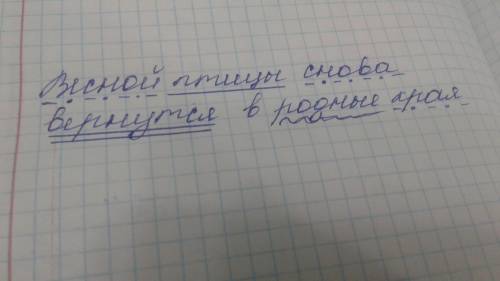 Весной птицы снова
вернутся в родные края